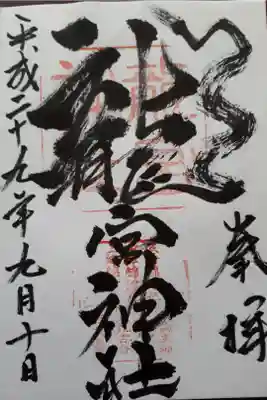 奉拝
龍宮神社
平成二十九年九月十日